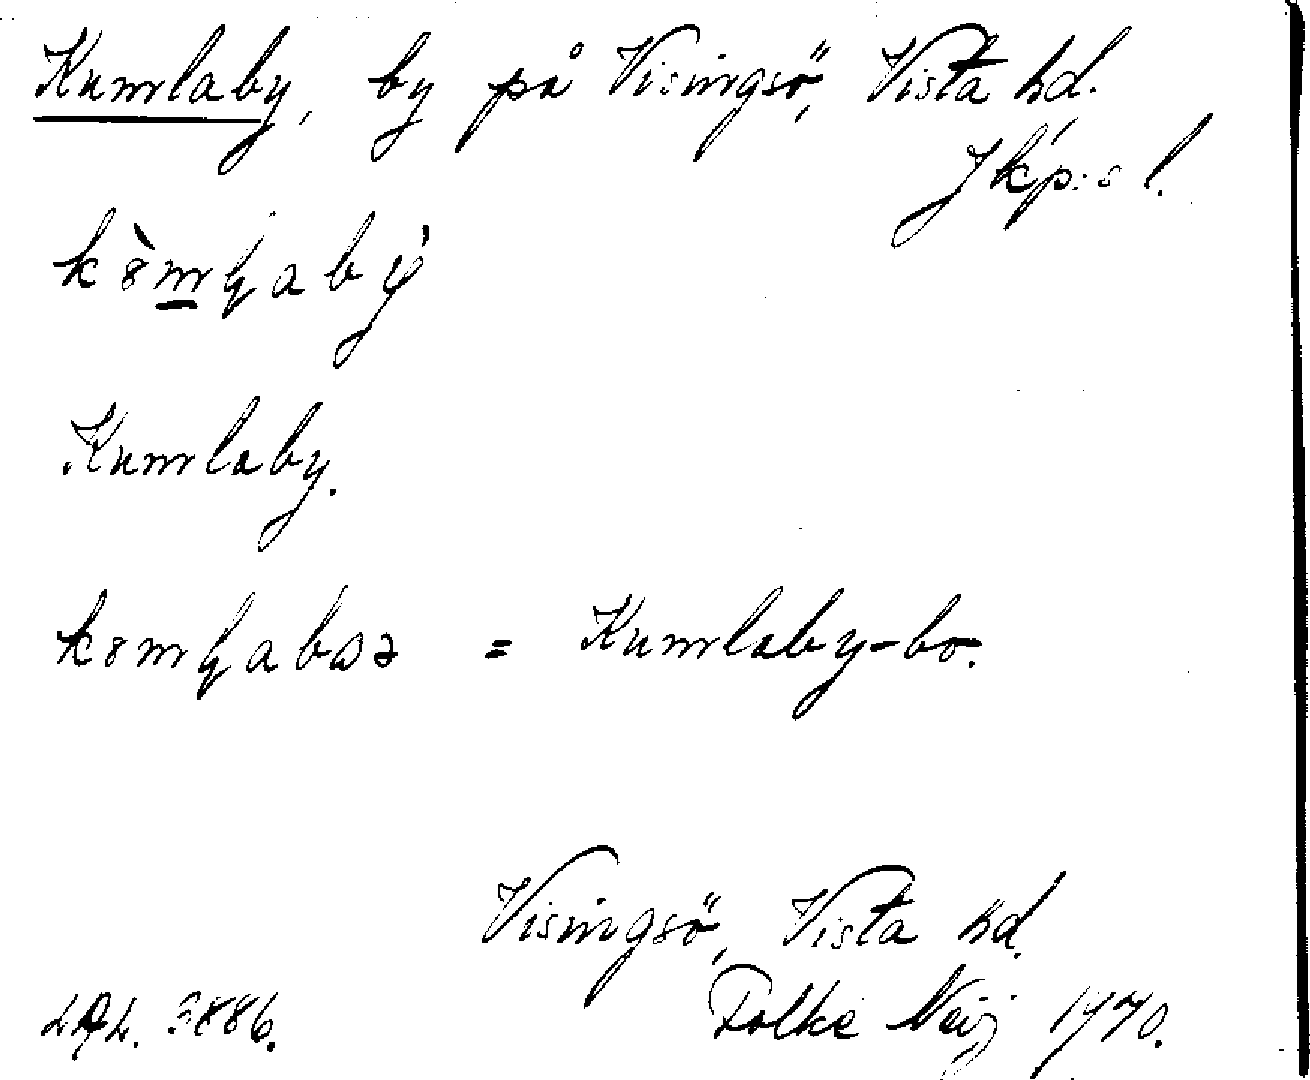 Kumlaby, by på Visingsö, Vista hd.
Jkp:s l.
Kumlaby.
= Kumlaby-bo.
Visingsö, Vista hd.
Folke 1970.
3886.